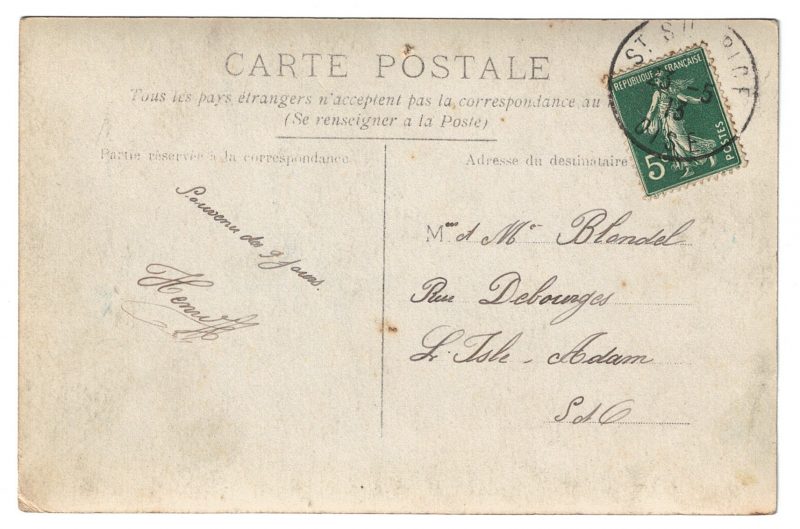 CARTE POSTALE
Tous les pays étrangers n'acceptent pas la correspondance au
(Se renseigner a la Poste)
Partie réservée à la correspondance
Adresse du destinataire
ST SULPICE
-5
13
OISE
REPUBLIQUE FRANÇAISE
POSTES
5
Souvenir des 9 jours.
Henri
Mr & Me Blondel
Rue Debourges
L'Isle-Adam
S & O